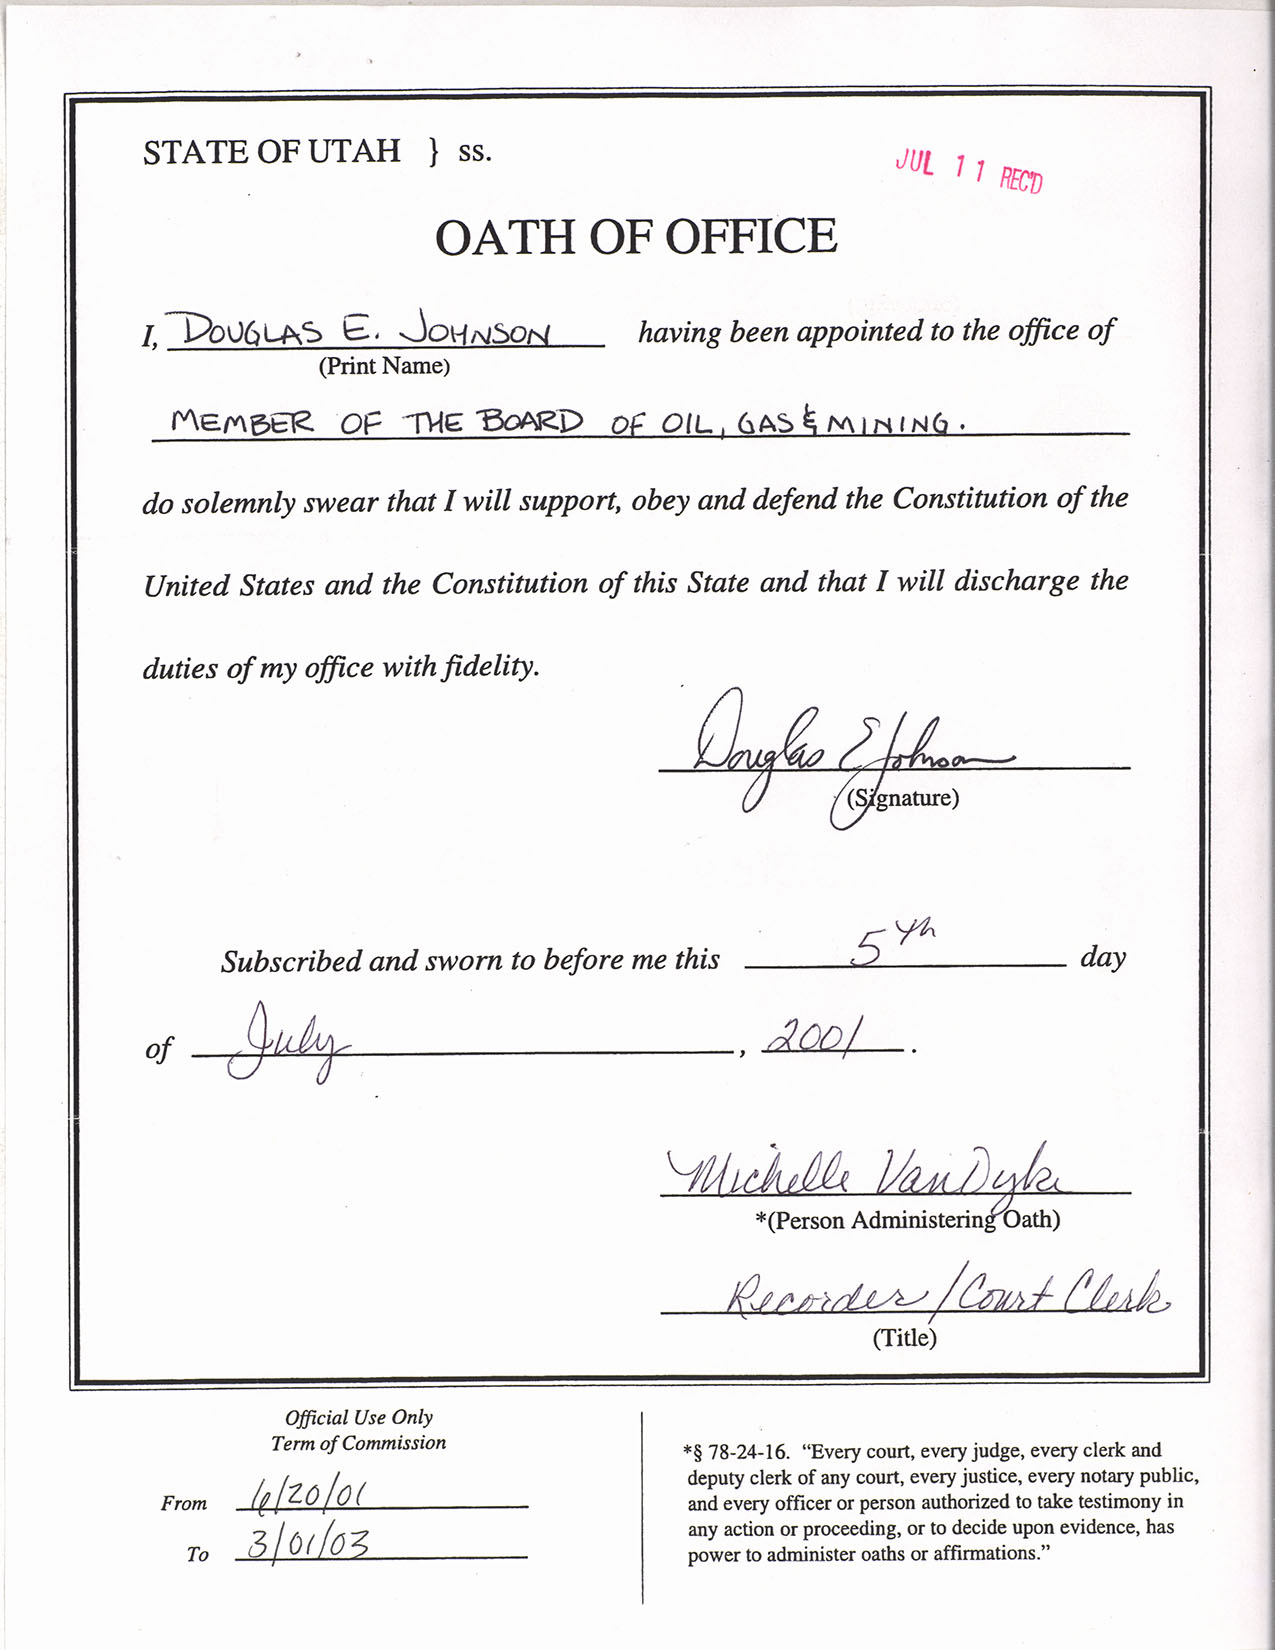 STATE OF UTAH } ss.
JUL 11 REC'D
OATH OF OFFICE
I, DOUGLAS E. JOHNSON having been appointed to the office of
(Print Name)
MEMBER OF THE BOARD OF OIL, GAS & MINING.
do solemnly swear that I will support, obey and defend the Constitution of the
United States and the Constitution of this State and that I will discharge the
duties of my office with fidelity.
Douglas E Johnson
(Signature)
Subscribed and sworn to before me this 5th day
of July, 2001.
Michelle VanDyke
*(Person Administering Oath)
Recorder/Court Clerk
(Title)
Official Use Only
Term of Commission
From 6/20/01
To 3/01/03
*§ 78-24-16. “Every court, every judge, every clerk and
deputy clerk of any court, every justice, every notary public,
and every officer or person authorized to take testimony in
any action or proceeding, or to decide upon evidence, has
power to administer oaths or affirmations.”